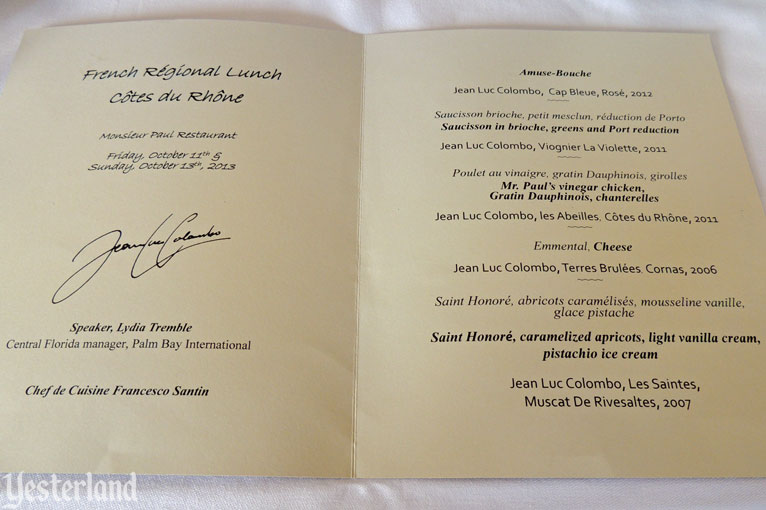 French Régional Lunch
Côtes du Rhône
Monsieur Paul Restaurant
Friday, October 11th &
Sunday, October 13th, 2013
Jean Luc Colombo
Speaker, Lydia Tremble
Central Florida manager, Palm Bay International
Chef de Cuisine Francesco Santin
Amuse-Bouche
Jean Luc Colombo, Cap Bleue, Rosé, 2012
Saucisson brioche, petit mesclun, réduction de Porto
Saucisson in brioche, greens and Port reduction
Jean Luc Colombo, Viognier La Violette, 2011
Poulet au vinaigre, gratin Dauphinois, girolles
Mr. Paul's vinegar chicken,
Gratin Dauphinois, chanterelles
Jean Luc Colombo, les Abeilles. Côtes du Rhône, 2011
Emmental, Cheese
Jean Luc Colombo, Terres Brulées. Cornas, 2006
Saint Honoré, abricots caramélisés, mousseline vanille,
glace pistache
Saint Honoré, caramelized apricots, light vanilla cream,
pistachio ice cream
Jean Luc Colombo, Les Saintes,
Muscat De Rivesaltes, 2007
Yesterland